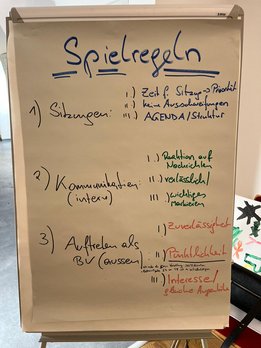 Spielregeln
1) Sitzungen:
I.) Zeit f. Sitzung → Priorität
II.) keine Ausschweifungen
III.) AGENDA/Struktur
2) Kommunikation: (intern)
I.) Reaktion auf Nachrichten
II.) verlässlich/
III.) wichtiges markieren
3) Auftreten als BV (aussen):
I.) Zuverlässigkeit
II.) Pünktlichkeit
III.) Interesse/